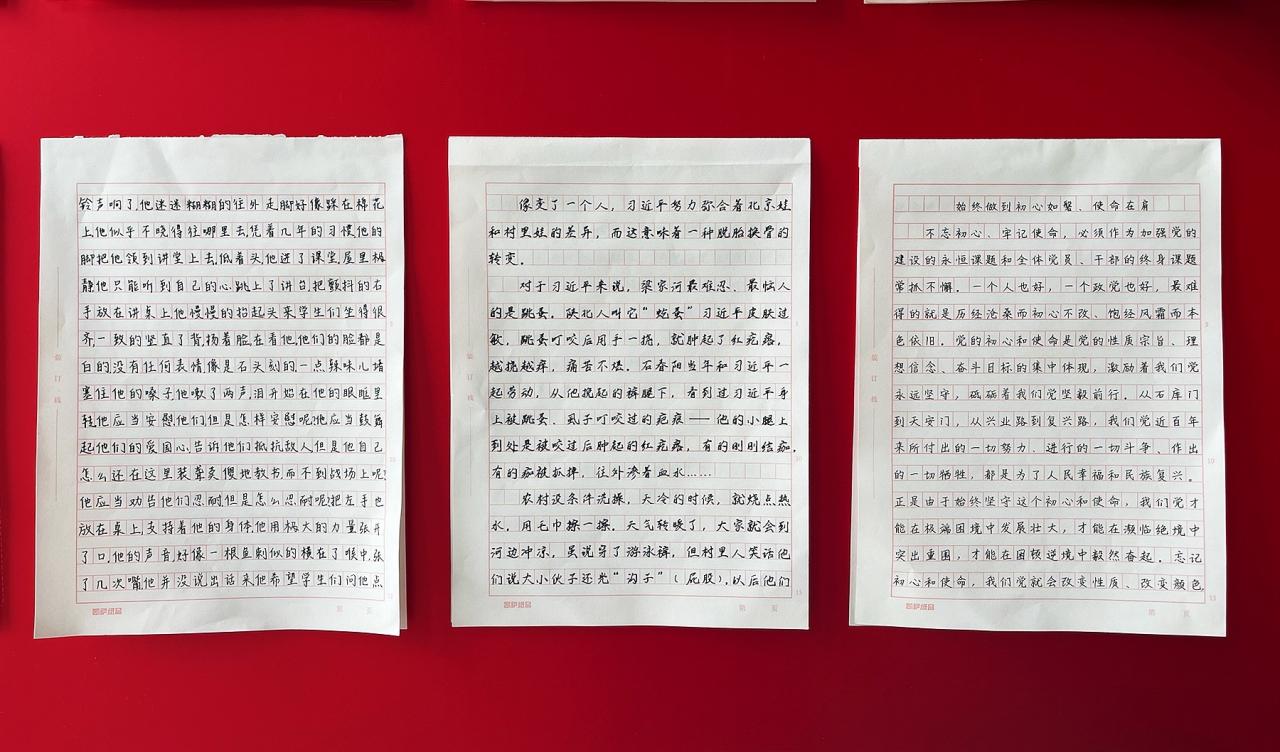 铃声响了,他迷迷糊糊的往外走,脚好像踩在棉花
上他似乎不晓得往哪里去,凭着几年的习惯他的
脚把他领到讲堂上去,低着头他进了课堂,屋里极
静他只能听到自己的心跳上了讲台把颤抖的右
手放在讲桌上他慢慢的抬起头来学生们坐得很
齐,一致的竖直了背,扬着脸在看他,他们的脸都是
白的没有任何表情像是石头刻的,一点辣味儿堵
塞住他的嗓子,他嗽了两声泪开始在他的眼眶里
转他应当安慰他们但是怎样安慰呢他应当鼓舞
起他们的爱国心,告诉他们抵抗敌人但是他自己
怎么还在这里装聋卖傻地教书而不到战场上呢?
他应当劝告他们忍耐但是怎么忍耐呢把左手也
放在桌上支持着他的身体他用极大的力量张开
了口,他的声音好像一根鱼刺似的横在了喉中,张
了几次嘴他并没说出话来他希望学生们问他点
装订线
5
10
15
凯萨纸品
第 页
像变了一个人,习近平努力弥合着北京娃
和村里娃的差异,而这意味着一种脱胎换骨的
转变。
对于习近平来说,梁家河最难忍、最恼人
的是跳蚤。陕北人叫它“虼蚤”习近平皮肤过
敏,跳蚤叮咬后用手一挠,就肿起了红疙瘩,
越挠越痒,痛苦不堪。石春阳当年和习近平一
起劳动,从他挽起的裤腿下,看到过习近平身
上被跳蚤、虱子叮咬过的疤痕——他的小腿上
到处是被咬过后肿起的红疙瘩,有的刚刚结痂,
有的痂被抓掉,往外渗着血水……
农村没条件洗澡,天冷的时候,就烧点热
水,用毛巾擦一擦。天气转暖了,大家就会到
河边冲凉,虽说穿了游泳裤,但村里人笑话他
们说大小伙子还光“沟子”(屁股),以后他们
装订线
5
10
15
凯萨纸品
第 页
始终做到初心如磐、使命在肩
不忘初心、牢记使命,必须作为加强党的
建设的永恒课题和全体党员、干部的终身课题
常抓不懈。一个人也好,一个政党也好,最难
得的就是历经沧桑而初心不改、饱经风霜而本
色依旧。党的初心和使命是党的性质宗旨、理
想信念、奋斗目标的集中体现,激励着我们党
永远坚守,砥砺着我们党坚毅前行。从石库门
到天安门,从兴业路到复兴路,我们党近百年
来所付出的一切努力、进行的一切斗争、作出
的一切牺牲,都是为了人民幸福和民族复兴。
正是由于始终坚守这个初心和使命,我们党才
能在极端困境中发展壮大,才能在濒临绝境中
突出重围,才能在困极逆境中毅然奋起。忘记
初心和使命,我们党就会改变性质、改变颜色
装订线
5
10
15
凯萨纸品
第 页